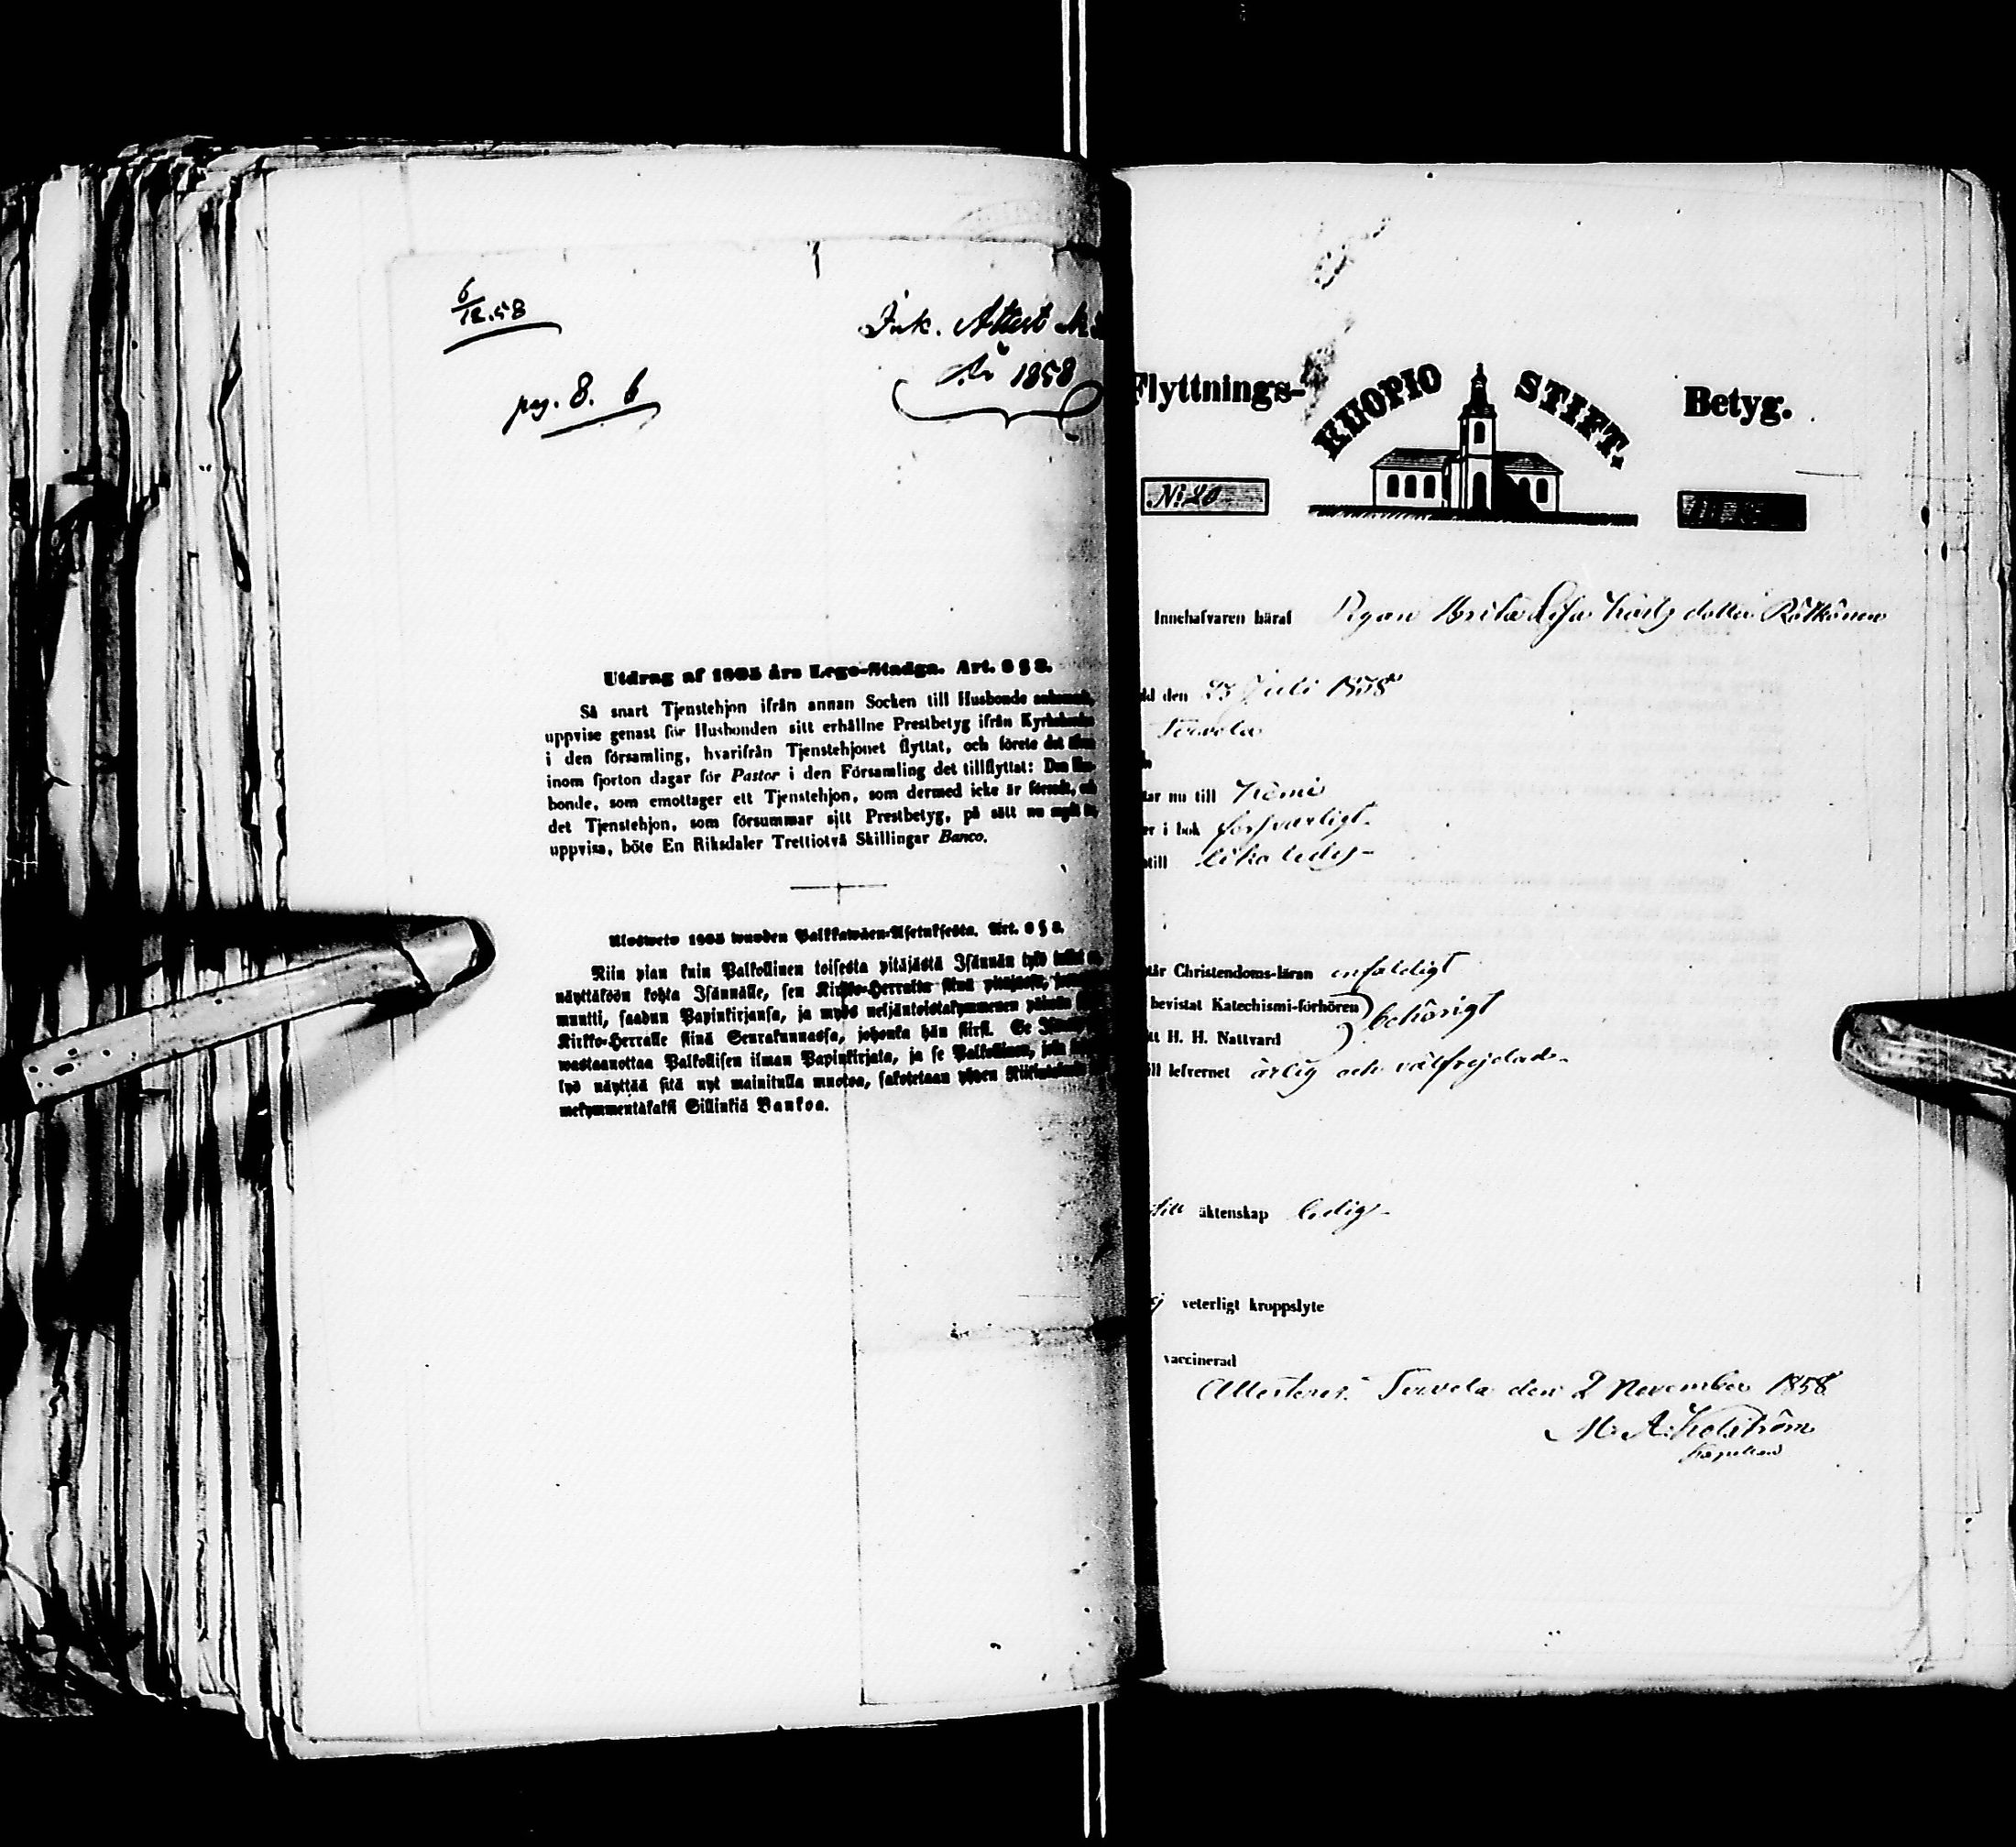 6/12.58
Ink. Attest N:
År 1858
pag. 8. 6
Utdrag af 1805 års Lego-Stadga. Art. 6 § 8.
Så snart Tjenstehjon ifrån annan Socken till Husbonde
uppvise genast för Husbonden sitt erhållne Prestbetyg ifrån
i den församling, hvarifrån Tjenstehjonet flyttat, och förete det
inom fjorton dagar för Pastor i den Församling det tillflyttat: Den
bonde, som emottager ett Tjenstehjon, som dermed icke är försedt,
det Tjenstehjon, som försummar sitt Prestbetyg, på sätt nu
uppvisa, böte En Riksdaler Trettiotvå Skillingar Banco.
Ulosweto 1805 wuoden Palkkawäen-Asetuksesta. Art. 6 § 8.
Niin pian kuin Palkollinen toisesta pitäjästä Isännän tykö
näyttäköön kohta Isännälle, sen Kirkko-Herralta siinä pitäjässä,
muutti, saadun Papinkirjansa, ja myös neljäntoistakymmenen päiwän
Kirkko-Herralle siinä Seurakunnassa, johonka hän siirsi. Se
wastaanottaa Palkollisen ilman Papinkirjata, ja se Palkollinen, join
lyö näyttää sitä nyt mainitulla muotoa, sakotetaan yhden
mekymmentäkaksi Sillinkiä Bankoa.
Flyttnings- KUOPIO STIFT. Betyg.
N: 20
Innehafvaren häraf Pigan Brita Lisa Carlsdotter Rötkönen
dd den 23 Juli 1838
Tervola
tar nu till Kemi
er i bok försvarligt
till lika ledes
tår Christendoms-läran enfaldigt
bevistat Katechismi-förhören behörigt
tt H. H. Nattvard
ill lefvernet ärlig och välfrejdad
till äktenskap ledig
ej veterligt kroppslyte
vaccinerad
Attesteras. Tervola den 2 November 1858
M. A. Holström
Kapellan